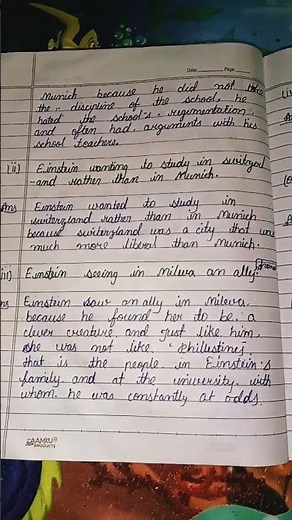 Date: Page:
Munich because he did not
the discipline of the school, he
hated the school's regimentation
and often had arguments with his
school teachers.
ii) Einstein wanting to study in
and rather than in Munich.
Ans Einstein wanted to study in
switzerland rather than in Munich
because switzerland was a city that was
much more liberal than Munich.
iii) Einstein seeing in Mileva an ally.
Einstein saw an ally in Mileva.
because he found her to be a
clever creature and Just like him,
she was not like
that is the people in Einstein's
family and at the university with
whom he was constantly at odds.
PRODUCTS